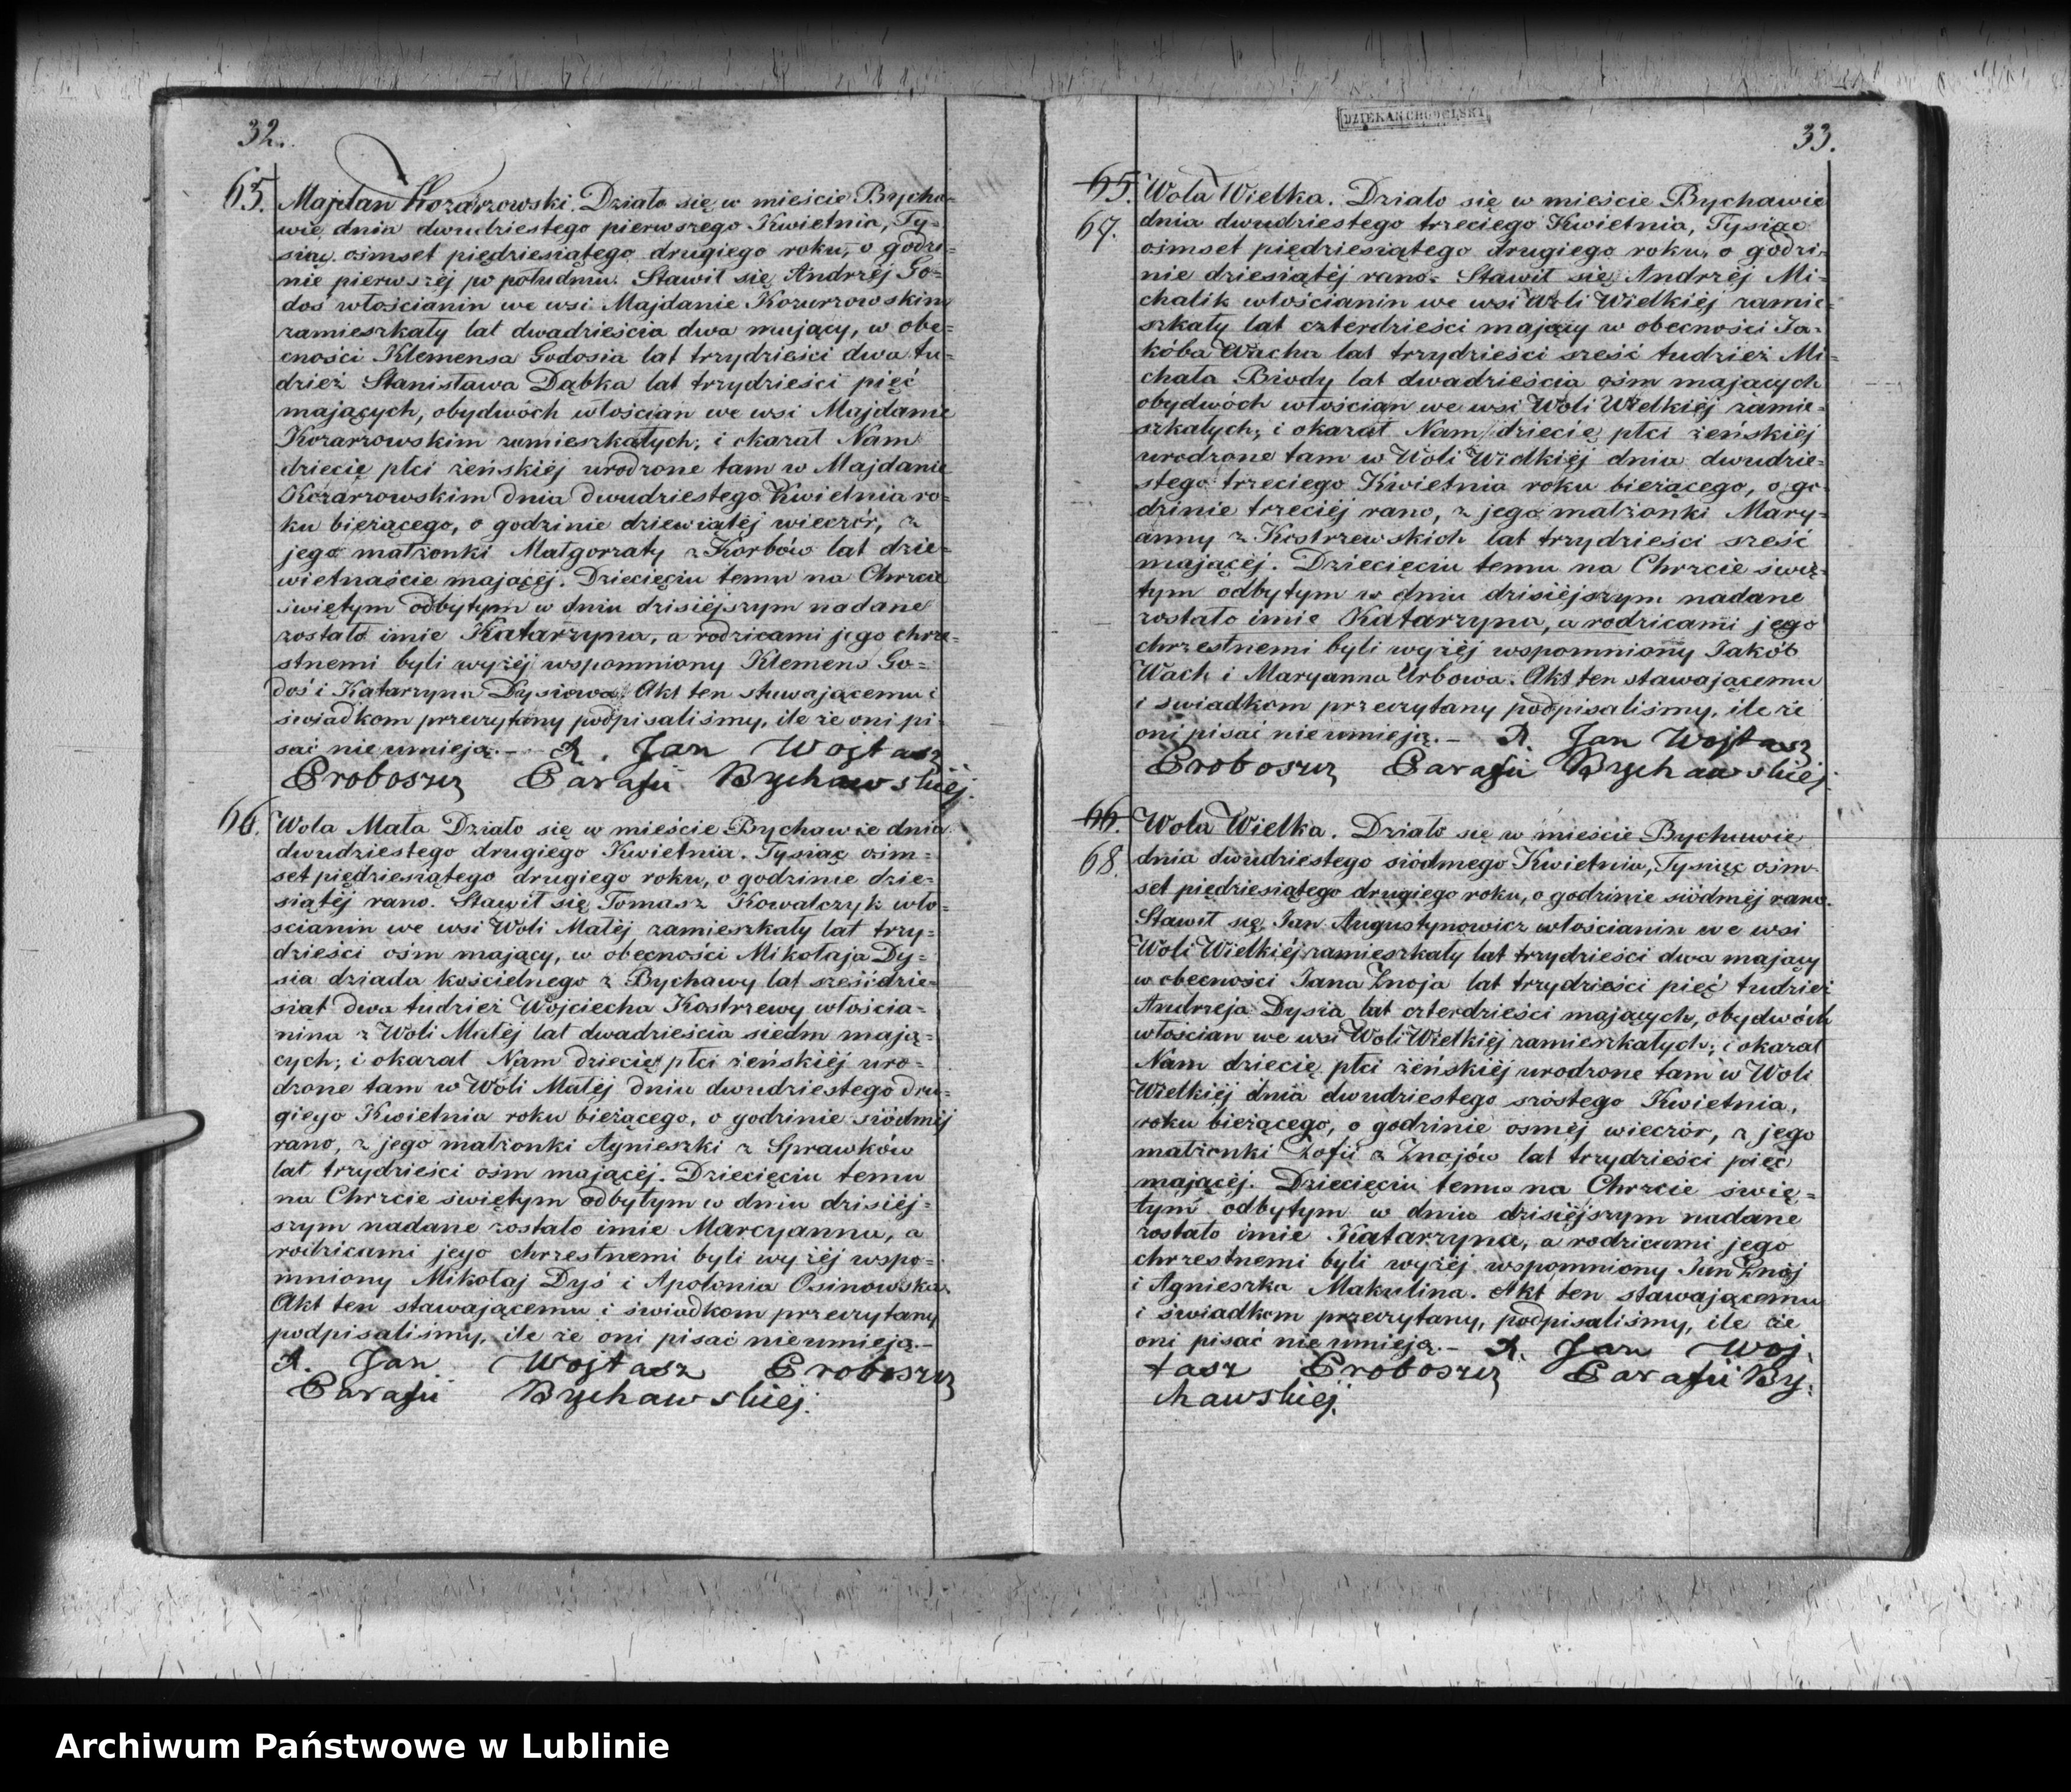 32.
65. Majdan Kozarzowski. Działo się w mieście Bycha-
wie dnia dwudziestego pierwszego Kwietnia, Ty-
siąc ośmset piędziesiątego drugiego roku, o godzi-
nie pierwszéj po południu. Stawił się Andrzéj Go-
doś włościanin we wsi Majdanie Kozarzowskim
zamieszkały lat dwadzieścia dwa mający, w obe-
cności Klemensa Godosia lat trzydzieści dwa tu-
dzież Stanisława Dąbka lat trzydzieści pięć
mających, obydwóch włościan we wsi Majdanie
Kozarzowskim zamieszkałych; i okazał Nam
dziecię płci żeńskiéj urodzone tam w Majdanie
Kozarzowskim dnia dwudziestego Kwietnia ro-
ku bieżącego, o godzinie dziewiątéj wieczór, z
jego małżonki Małgorzaty z Korbów lat dzie-
wietnaście mającéj. Dziecięciu temu na Chrzcie
świętym odbytym w dniu dzisiéjszym nadane
zostało imie Katarzyna, a rodzicami jego chrze-
stnemi byli wyżéj wspomniony Klemens Go-
doś i Katarzyna Dysiowa. Akt ten stawającemu i
świadkom przeczytany podpisaliśmy, ile że oni pi-
sać nie umieją.- X. Jan Wojtasz
Proboszcz Parafii Bychawskiéj.
66. Wola Mała Działo się w mieście Bychawie dnia
dwudziestego drugiego Kwietnia. Tysiąc ośm-
set piędziesiątego drugiego roku, o godzinie dzie-
siątéj rano. Stawił się Tomasz Kowalczyk wło-
scianin we wsi Woli Małéj zamieszkały lat trzy-
dzieści ośm mający, w obecności Mikołaja Dy-
sia dziada kościelnego z Bychawy lat sześćdzie-
siąt dwa tudzież Wojciecha Kostrzewy włościa-
nina z Woli Małéj lat dwadzieścia siedm mają-
cych; i okazał Nam dziecię płci żeńskiéj uro-
dzone tam w Woli Małéj dniu dwudziestego dru-
giego Kwietnia roku bieżącego, o godzinie siódméj
rano, z jego małżonki Agnieszki z Sprawków
lat trzydzieści ośm mającéj. Dziecięciu temu
na Chrzcie świętym odbytym w dniu dzisiéj-
szym nadane zostało imie Marcyanna, a
rodzicami jego chrzestnemi byli wyżéj wspo-
mniony Mikołaj Dyś i Apolonia Osinowska.
Akt ten stawającemu i świadkom przeczytany
podpisaliśmy, ile że oni pisać nie umieją.-
X. Jan Wojtasz Proboszcz
Parafii Bychawskiéj.
DZIEKAN CHODELSKI
33.
65. Wola Wielka. Działo się w mieście Bychawie
67. dnia dwudziestego trzeciego Kwietnia, Tysiąc
ośmset piędziesiątego drugiego roku, o godzi-
nie dziesiątéj rano. Stawił się Andrzéj Mi-
chalik włościanin we wsi Woli Wielkiéj zamie-
szkały lat czterdzieści mający w obecności Ja-
kóba Wacha lat trzydzieści sześć tudzież Mi-
chała Biody lat dwadzieścia ośm mających
obydwóch włościan we wsi Woli Wielkiéj zamie-
szkałych; i okazał Nam dziecię płci żeńskiéj
urodzone tam w Woli Wielkiéj dnia dwudzie-
stego trzeciego Kwietnia roku bieżącego, o go-
dzinie trzeciéj rano, z jego małżonki Mary-
anny z Kostrzewskich lat trzydzieści sześć
mającéj. Dziecięciu temu na Chrzcie świę-
tym odbytym w dniu dzisiéjszym nadane
zostało imie Katarzyna, a rodzicami jego
chrzestnemi byli wyżéj wspomniony Jakób
Wach i Maryanna Urbowa. Akt ten stawającemu
i swiadkom przeczytany podpisaliśmy, ile że
oni pisać nie umieją.- X. Jan Wojtasz
Proboszcz Parafii Bychawskiéj.
66. Wola Wielka. Działo się w mieście Bychawie
68. dnia dwudziestego siódmego Kwietnia, Tysiąc ośm-
set piędziesiątego drugiego roku, o godzinie siódméj rano.
Stawił się Jan Augustynowicz włościanin we wsi
Woli Wielkiéj zamieszkały lat trzydzieści dwa mający
w obecności Jana Znoja lat trzydzieści pięć tudzież
Andrzeja Dysia lat czterdzieści mających, obydwóch
włościan we wsi Woli Wielkiéj zamieszkałych; i okazał
Nam dziecię płci żeńskiéj urodzone tam w Woli
Wielkiéj dnia dwudziestego szóstego Kwietnia,
roku bieżącego, o godzinie osméj wieczór, z jego
małżonki Zofii z Znojów lat trzydzieści pięć
mającéj. Dziecięciu temu na Chrzcie świę-
tym odbytym w dniu dzisiéjszym nadane
zostało imie Katarzyna, a rodzicami jego
chrzestnemi byli wyżéj wspomniony Jan Znój
i Agnieszka Makulina. Akt ten stawającemu
i świadkom przeczytany, podpisaliśmy, ile że
oni pisać nie umieją.- X. Jan Woj-
tasz Proboszcz Parafii By-
chawskiéj.
Archiwum Państwowe w Lublinie